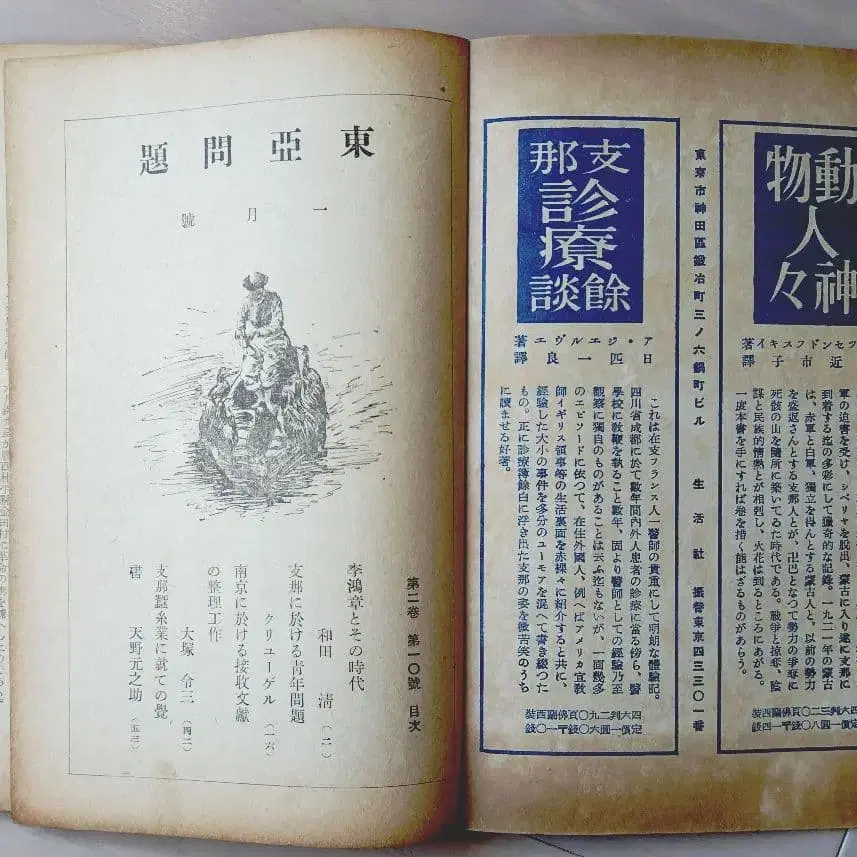 動物
人
神々
ツセンドフスキイ著
近市子譯
軍の迫害を受け、シベリヤを脱出、蒙古に入り遂に支那に
到着する迄の多彩にして獵奇的な記錄。一九二一年の蒙古
は、赤軍と白軍、獨立を得んとする蒙古人と、以前の勢力
を盛返さんとする支那人とが、卍巴となつて勢力の爭奪に
死骸の山を隨所に築いてゐた時代である。戰爭と掠奪、陰
謀と民族的情熱とが相剋し、火花は到るところにあがる。
一度本書を手にすれば卷を措く能はざるものがあらう。
東京市神田區鍛冶町三ノ六鍋町ビル 生活社 振替東京四三三〇一番
支那
診療
餘談
ア・ジエルヴエ著
日四一良譯
これは在支フランス人一醫師の貴重にして明朗な體驗記。
四川省成都に於て數年間内外人患者の診療に當る傍ら、醫
學校に敎鞭を執ること數年、固より醫師としての經驗乃至
觀察に獨自のものがあることは云ふ迄もないが、一面幾多
のエピソードに依つて、在住外國人、例へばアメリカ宣敎
師イギリス領事等の生活裏面を赤裸々に紹介すると共に、
經驗した大小の事件を多分のユーモアを混へて書き綴つた
もの。正に診療簿餘白に浮き出た支那の姿を微苦笑のうち
に讀ませる好著。
四六判二九〇頁佛蘭西裝
定價一圓六〇錢〒一〇錢
東亞問題
一月號
第二卷 第一〇號 目次
李鴻章とその時代
和田 淸(二)
支那に於ける靑年問題
クリユーゲル(一六)
南京に於ける接收文獻
の整理工作
大塚 令三(四二)
支那蠶糸業に就ての覺
書 天野元之助(五三)